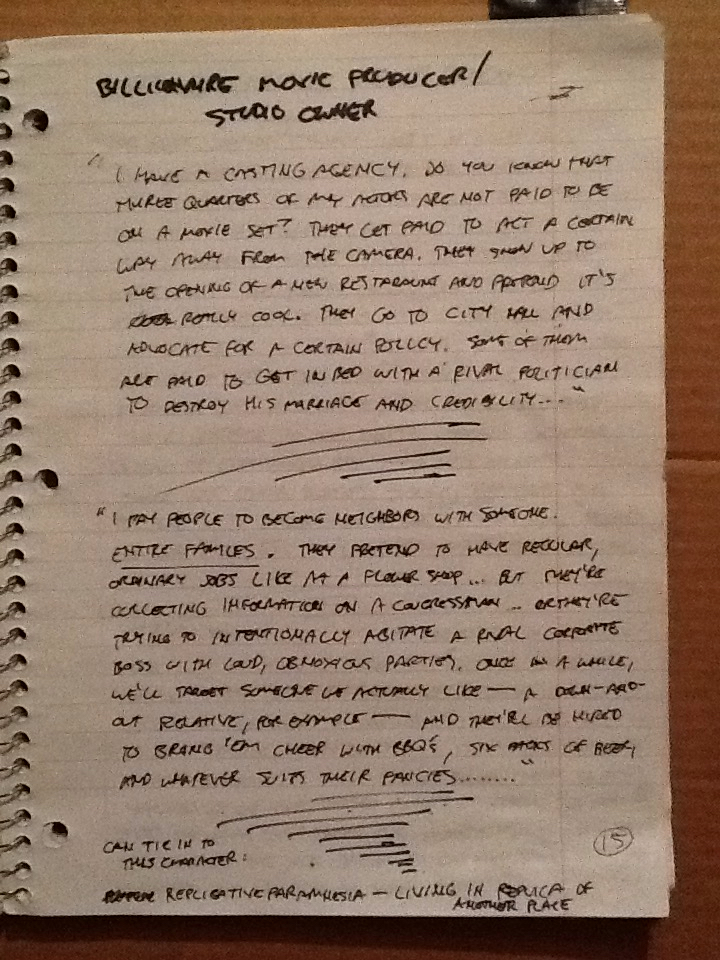 BILLIONAIRE MOVIE PRODUCER/
STUDIO OWNER
"I HAVE A CASTING AGENCY. DO YOU KNOW THAT
THREE QUARTERS OF MY ACTORS ARE NOT PAID TO BE
ON A MOVIE SET? THEY GET PAID TO ACT A CERTAIN
WAY AWAY FROM THE CAMERA. THEY SHOW UP TO
THE OPENING OF A NEW RESTARAUNT AND PRETEND IT'S
REALLY COOL. THEY GO TO CITY HALL AND
ADVOCATE FOR A CERTAIN POLICY. SOME OF THEM
ARE PAID TO GET IN BED WITH A RIVAL POLITICIAN
TO DESTROY HIS MARRIAGE AND CREDIBILITY...."
"I PAY PEOPLE TO BECOME NEIGHBORS WITH SOMEONE.
ENTIRE FAMILES. THEY PRETEND TO HAVE REGULAR,
ORDINARY JOBS LIKE AT A FLOWER SHOP... BUT THEY'RE
COLLECTING INFORMATION ON A CONGRESSMAN.. OR THEY'RE
TRYING TO INTENTIONALLY AGITATE A RIVAL CORPORATE
BOSS WITH LOUD, OBNOXIOUS PARTIES. ONCE IN A WHILE,
WE'LL TARGET SOMEONE WE ACTUALLY LIKE — A DOWN-AND-
OUT RELATIVE, FOR EXAMPLE — AND THEY'LL BE HIRED
TO BRING 'EM CHEER WITH BBQ'S, SIX PACKS OF BEER,
AND WHATEVER SUITS THEIR FANCIES........"
CAN TIE IN TO
THIS CHARACTER:
15
REPLICATIVE PARAMNESIA — LIVING IN REPLICA OF
ANOTHER PLACE